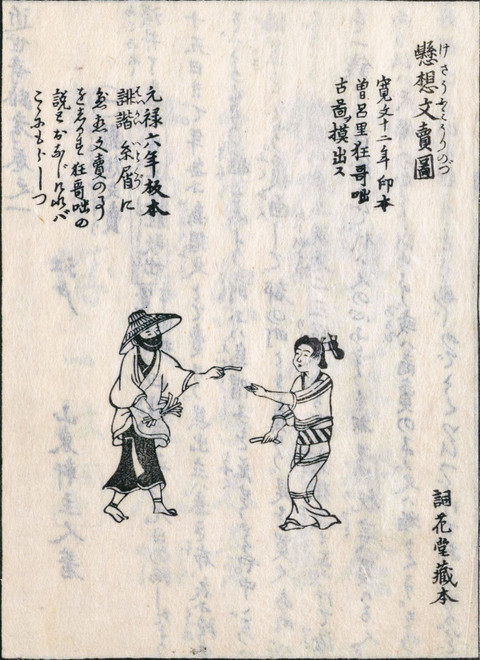 懸想文賣圖
寛文十二年印本
曽呂里狂哥咄
古啚摸出ス
元禄六年板本
誹諧糸屑に
文賣の事
をしるす狂哥咄の
説とおなじければ
こゝにもらしつ
詞花堂藏本